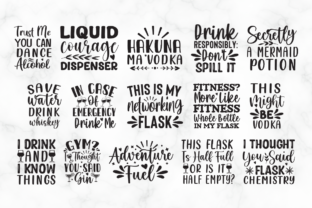 Trust Me
YOU CAN
DANCE
Alcohol
LIQUID
courage
DISPENSER
HAKUNA
MA'VODKA
Drink
RESPONSIBLY:
Don't
SPILL IT
Secretly
A MERMAID
POTION
SAVE
water
DRINK
whiskey
IN CASE
OF
EMERGENCY
Drink Me
THIS IS MY
networking
FLASK
FITNESS?
More Like
FITNESS
Whole Bottle
IN MY FLASK
THIS
Might
BE
VODKA
I DRINK
AND
I KNOW
THINGS
GYM?
I Thought
YOU SAID
Gin
Adventure
Fuel
THIS FLASK
Is Half Full
OR IS IT
HALF EMPTY?
I THOUGHT
You Said
FLASK
CHEMISTRY